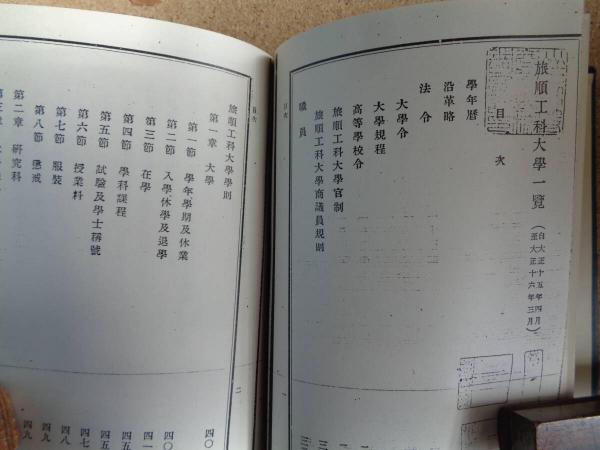 旅順工科大學一覽
(自大正十五年四月
至大正十六年三月)
目次
學年曆
沿革略
法令
大學令
大學規程
高等學校令
旅順工科大學官制
旅順工科大學商議員規則
職員
目次
目次
旅順工科大學學則
第一章 大學
第一節 學年學期及休業
第二節 入學休學及退學
第三節 在學
第四節 學科課程
第五節 試驗及學士稱號
第六節 授業料
第七節 服裝
第八節 懲戒
第二章 研究科
二
四〇
四〇
四一
四五
四七
四八
四九
四九